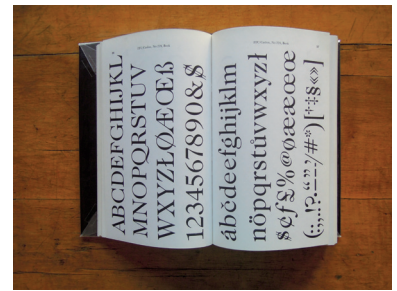 ABCDEFGHIJKL
MNOPQRSTUV
WXYZŁØÆŒß
1234567890&$
ábčdeefghijklm
nöpqrstůvwxyzł
$¢ƒ£%@øæœ
(:;,.!?·“”-–/#*)[†‡§«»]